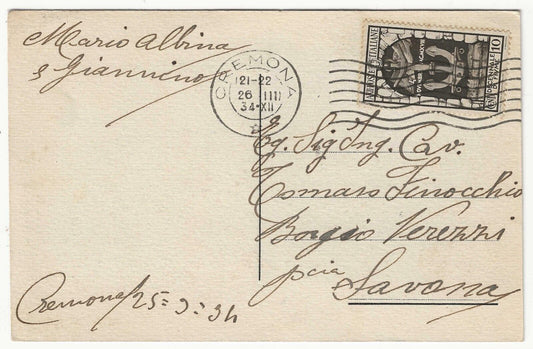 Mario Albina
e Giannino
CREMONA
21-22
26 III
34-XII
POSTE ITALIANE
10
Eg. Sig. Ing. Cav.
Tomaso Finocchio
Borgio Verezzi
pcia
Savona
Cremona 25-3-34